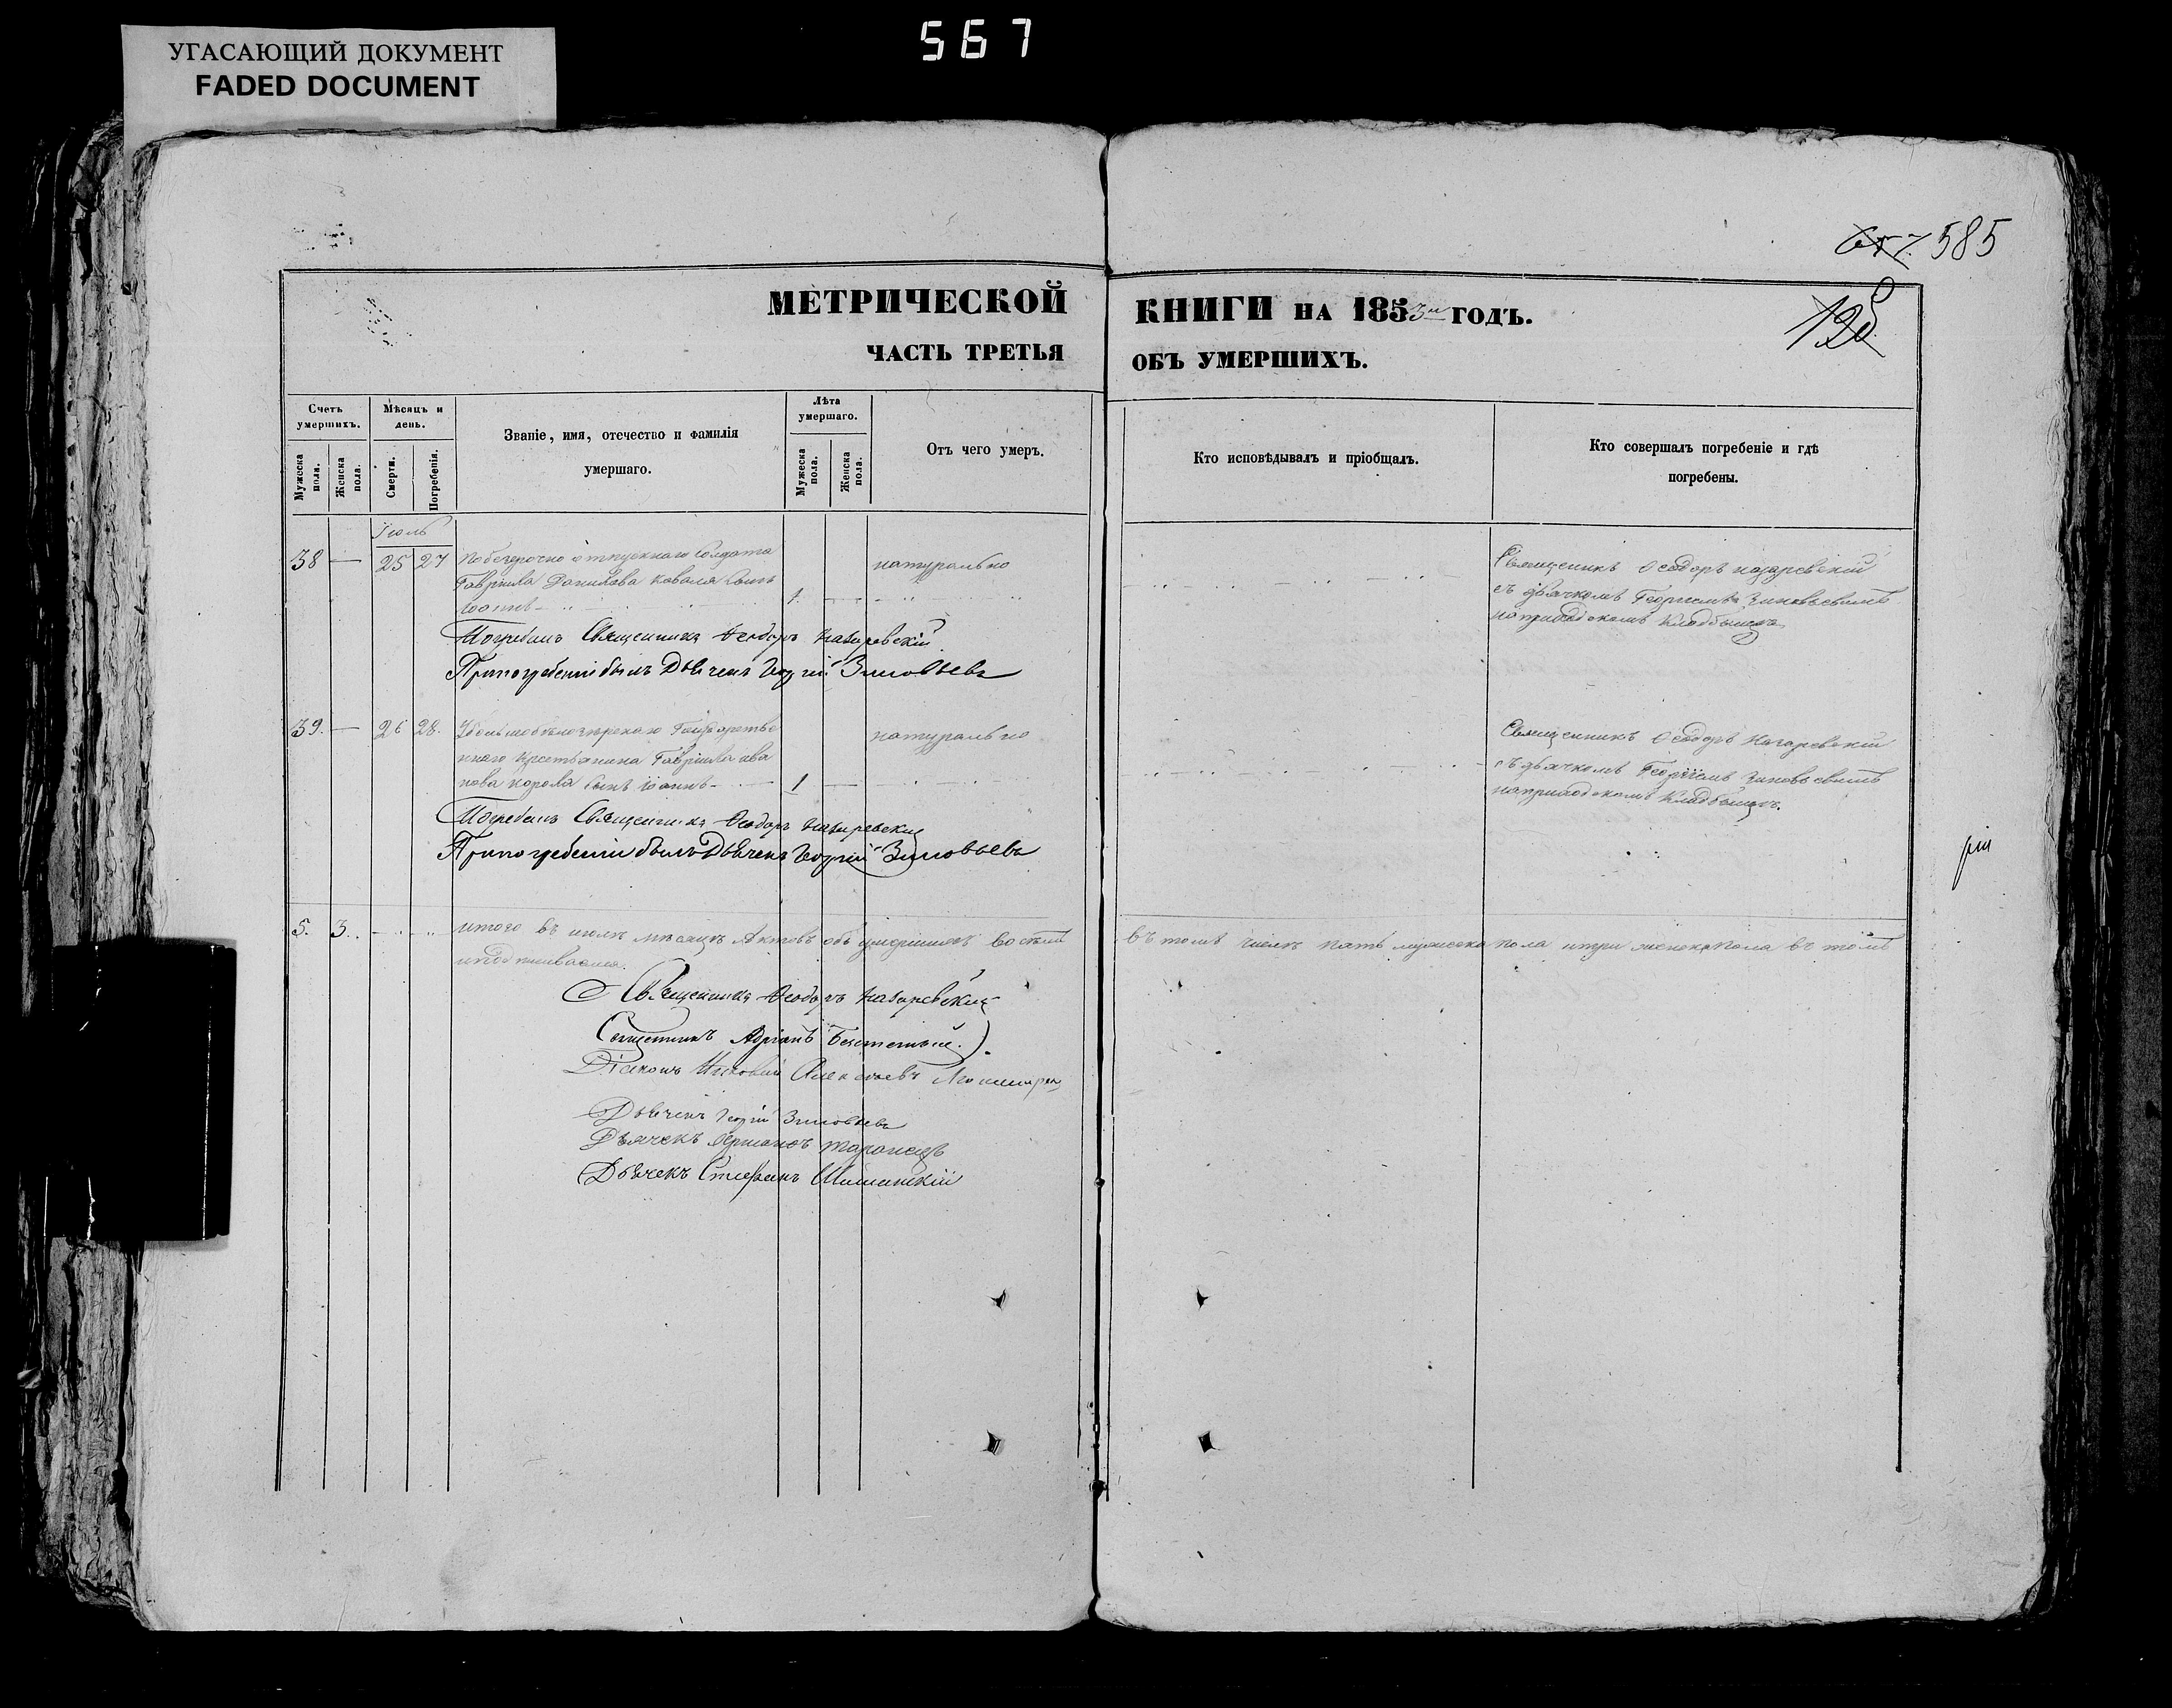 567
УГАСАЮЩИЙ ДОКУМЕНТ
FADED DOCUMENT
585
МЕТРИЧЕСКОЙ КНИГИ НА 1853й ГОДЪ.
ЧАСТЬ ТРЕТЬЯ ОБЪ УМЕРШИХЪ.
Счетъ умершихъ.
Мужеска пола.
Женска пола.
Мѣсяцъ и день.
Смерти.
Погребенія.
Званіе, имя, отечество и фамилія
умершаго.
Лѣта умершаго.
Мужеска пола.
Женска пола.
Отъ чего умеръ.
Кто исповѣдывалъ и пріобщалъ.
Кто совершалъ погребеніе и гдѣ
погребены.
Іюль
38 — 25 27 Побезсрочно отпускнаго Солдата натурально
Гавріила Данилова Коваля Сынъ
Іоаннъ 1.
Священникъ Ѳеодоръ Назаревскій
съ дьячкомъ Георгіемъ Зиновьевымъ
на приходскомъ Кладбищѣ
Погребалъ Священникъ Ѳеодоръ Назаревскій
При погребеніи былъ Дьячекъ Георгій Зиновьевъ
39. — 26 28. Государстве натурально
ннаго Крестьянина Гавріила Ива
нова Короля Сынъ Іоаннъ 1
Священникъ Ѳеодоръ Назаревскій
съ дьячкомъ Георгіемъ Зиновьевымъ
на приходскомъ Кладбищѣ.
Погребалъ Священникъ Ѳеодоръ Назаревскій
При погребеніи былъ Дьячекъ Георгій Зиновьевъ
5. 3. итого въ іюлѣ мѣсяцѣ Актовъ объ умершихъ восемь въ томъ числѣ пять мужеска пола и три женска пола въ томъ
и подписываемся.
Священникъ Ѳеодоръ Назаревскій
Священникъ Адріанъ
Діаконъ Алексѣевъ
Дьячекъ Георгій Зиновьевъ
Дьячекъ
Дьячекъ Стефанъ Шиманскій